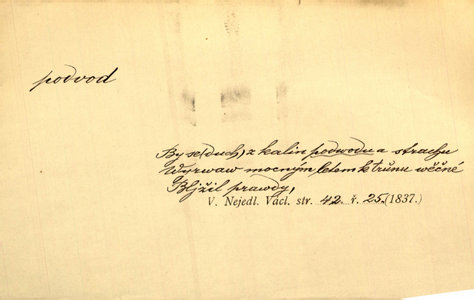 podvod
By se (duch) z kalin podwodu a strachu
Wyrwaw mocným letem k trůnu wěčné
Bljžil prawdy,
V. Nejedl. Václ. str. 42. ř. 25. (1837.)